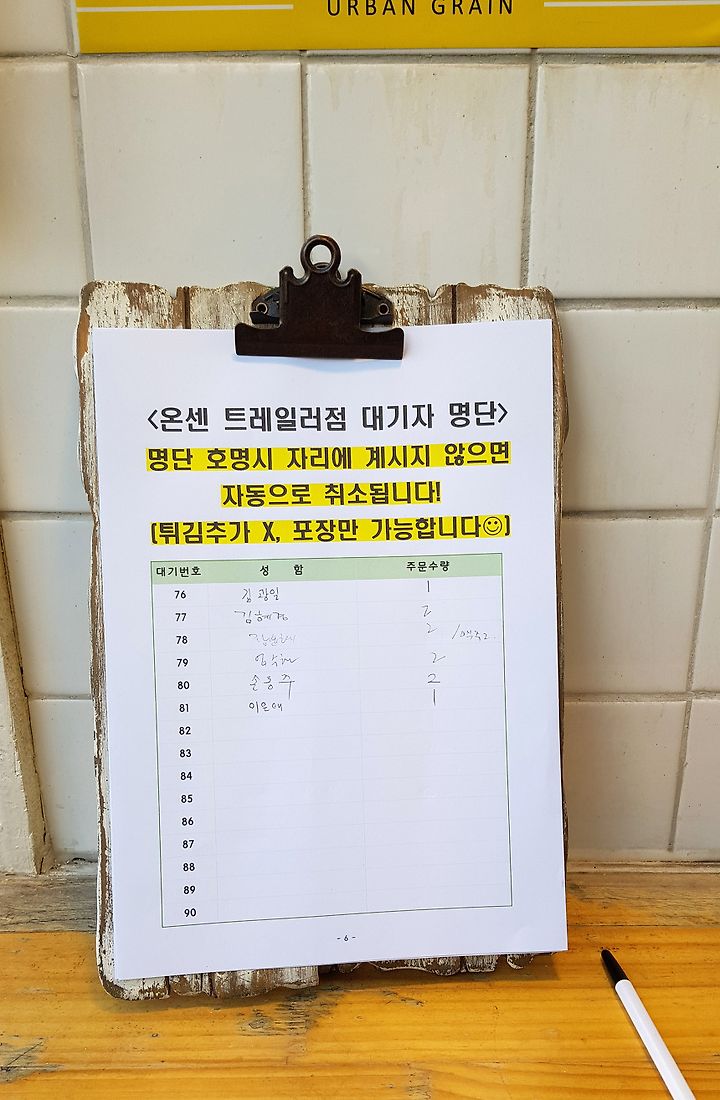 URBAN GRAIN
<온센 트레일러점 대기자 명단>
명단 호명시 자리에 계시지 않으면
자동으로 취소됩니다!
(튀김추가 X, 포장만 가능합니다☺)
대기번호 성 함 주문수량
76 김광일 1
77 김혜경 2
78 2
79 2
80 손용주 2
81 이은애 1
82
83
84
85
86
87
88
89
90
- 6 -